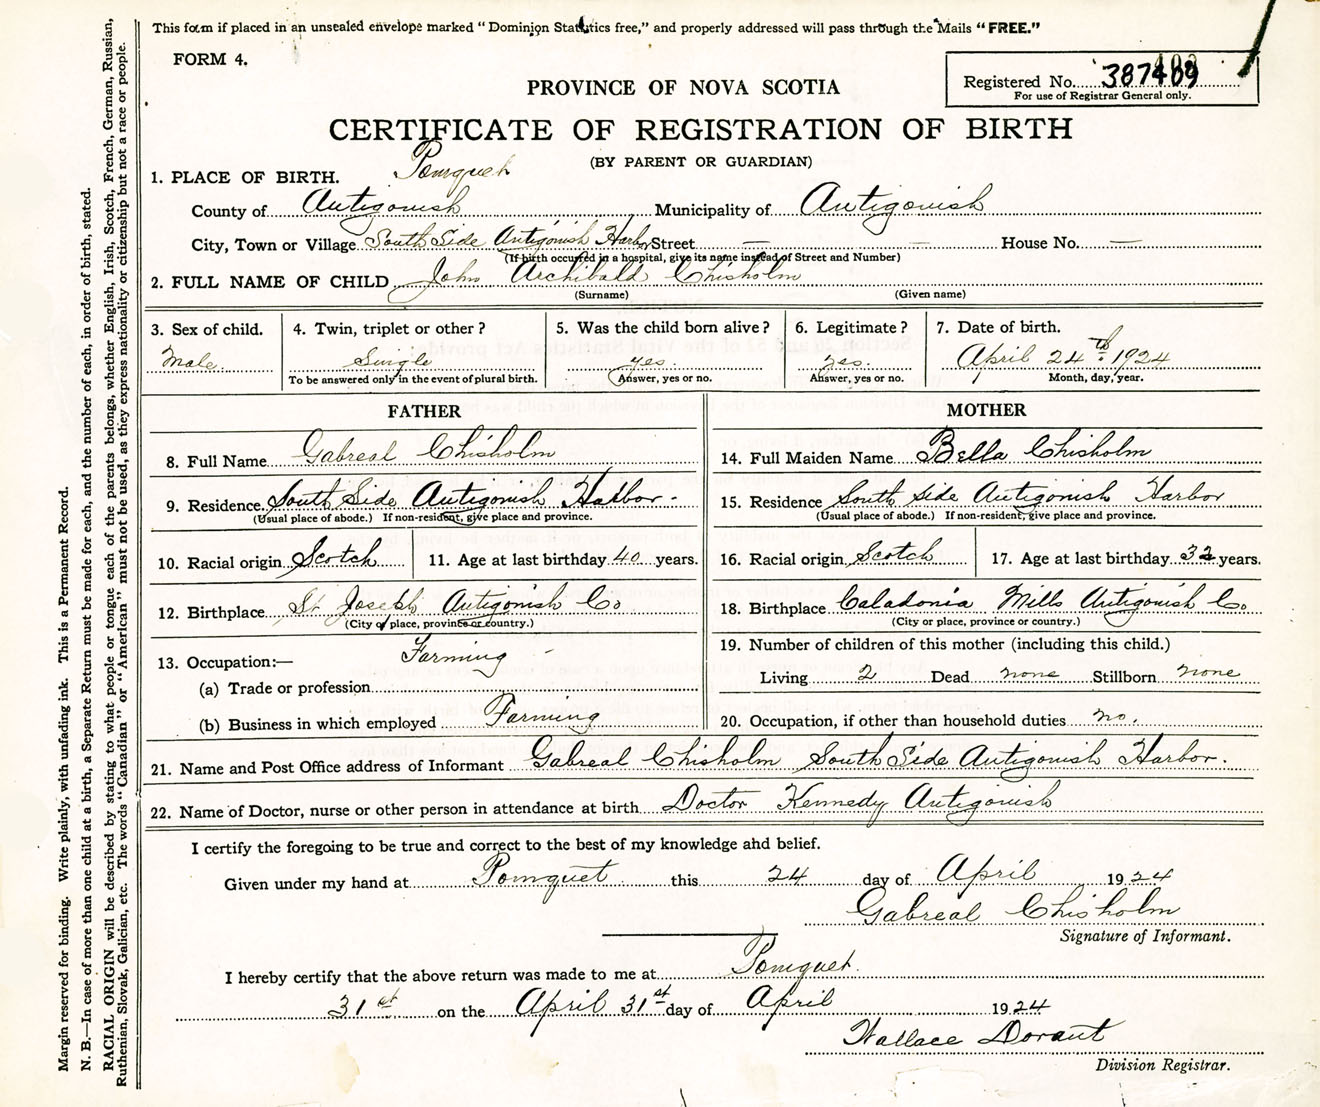 This form if placed in an unsealed envelope marked "Dominion Statistics free," and properly addressed will pass through the Mails "FREE."
FORM 4.
Registered No.
For use of Registrar General only.
PROVINCE OF NOVA SCOTIA
CERTIFICATE OF REGISTRATION OF BIRTH
(BY PARENT OR GUARDIAN)
1. PLACE OF BIRTH. Pomquet
County of Antigonish Municipality of Antigonish
City, Town or Village South Side Antigonish Harbor Street — — House No. —
(If birth occurred in a hospital, give its name instead of Street and Number)
2. FULL NAME OF CHILD John Archibald Chisholm
(Surname) (Given name)
3. Sex of child. 4. Twin, triplet or other? 5. Was the child born alive? 6. Legitimate? 7. Date of birth.
Male. Single yes. yes. April 24th 1924
To be answered only in the event of plural birth. Answer, yes or no. Answer, yes or no. Month, day, year.
FATHER
8. Full Name Gabreal Chisholm
9. Residence. South Side Antigonish Harbor.
(Usual place of abode.) If non-resident, give place and province.
10. Racial origin Scotch 11. Age at last birthday 40 years.
12. Birthplace St Joseph Antigonish Co
(City or place, province or country.)
13. Occupation:— Farming
(a) Trade or profession
(b) Business in which employed Farming
MOTHER
14. Full Maiden Name Bella Chisholm
15. Residence South Side Antigonish Harbor
(Usual place of abode.) If non-resident, give place and province.
16. Racial origin Scotch 17. Age at last birthday 32 years.
18. Birthplace Caladonia Mills Antigonish Co
(City or place, province or country.)
19. Number of children of this mother (including this child.)
Living 2 Dead none Stillborn none
20. Occupation, if other than household duties no.
21. Name and Post Office address of Informant Gabreal Chisholm South Side Antigonish Harbor.
22. Name of Doctor, nurse or other person in attendance at birth Doctor Kennedy Antigonish
I certify the foregoing to be true and correct to the best of my knowledge and belief.
Given under my hand at Pomquet this 24 day of April 1924
Gabreal Chisholm
Signature of Informant.
I hereby certify that the above return was made to me at Pomquet.
31st on the April 31st day of April 1924
Wallace Dorant
Division Registrar.
Margin reserved for binding. Write plainly, with unfading ink. This is a Permanent Record.
N. B.—In case of more than one child at a birth, a Separate Return must be made for each, and the number of each, in order of birth, stated.
RACIAL ORIGIN will be described by stating to what people or tongue each of the parents belongs, whether English, Irish, Scotch, French, German, Russian,
Ruthenian, Slovak, Galician, etc. The words "Canadian" or "American" must not be used, as they express nationality or citizenship but not a race or people.